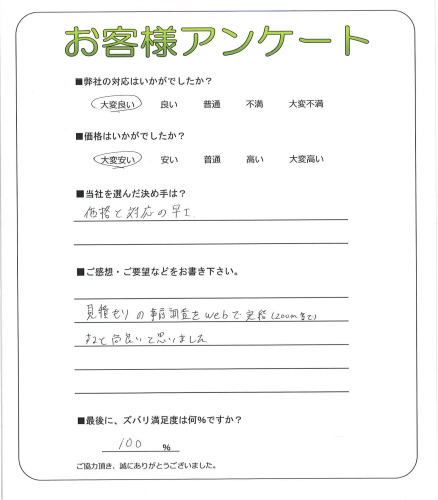 お客様アンケート
■弊社の対応はいかがでしたか？
大変良い 良い 普通 不満 大変不満
■価格はいかがでしたか？
大変安い 安い 普通 高い 大変高い
■当社を選んだ決め手は？
価格と対応の早さ
■ご感想・ご要望などをお書き下さい。
見積もりの事前調査をwebで実施(zoomなど)
すると尚良いと思いました
■最後に、ズバリ満足度は何％ですか？
100 %
ご協力頂き、誠にありがとうございました。